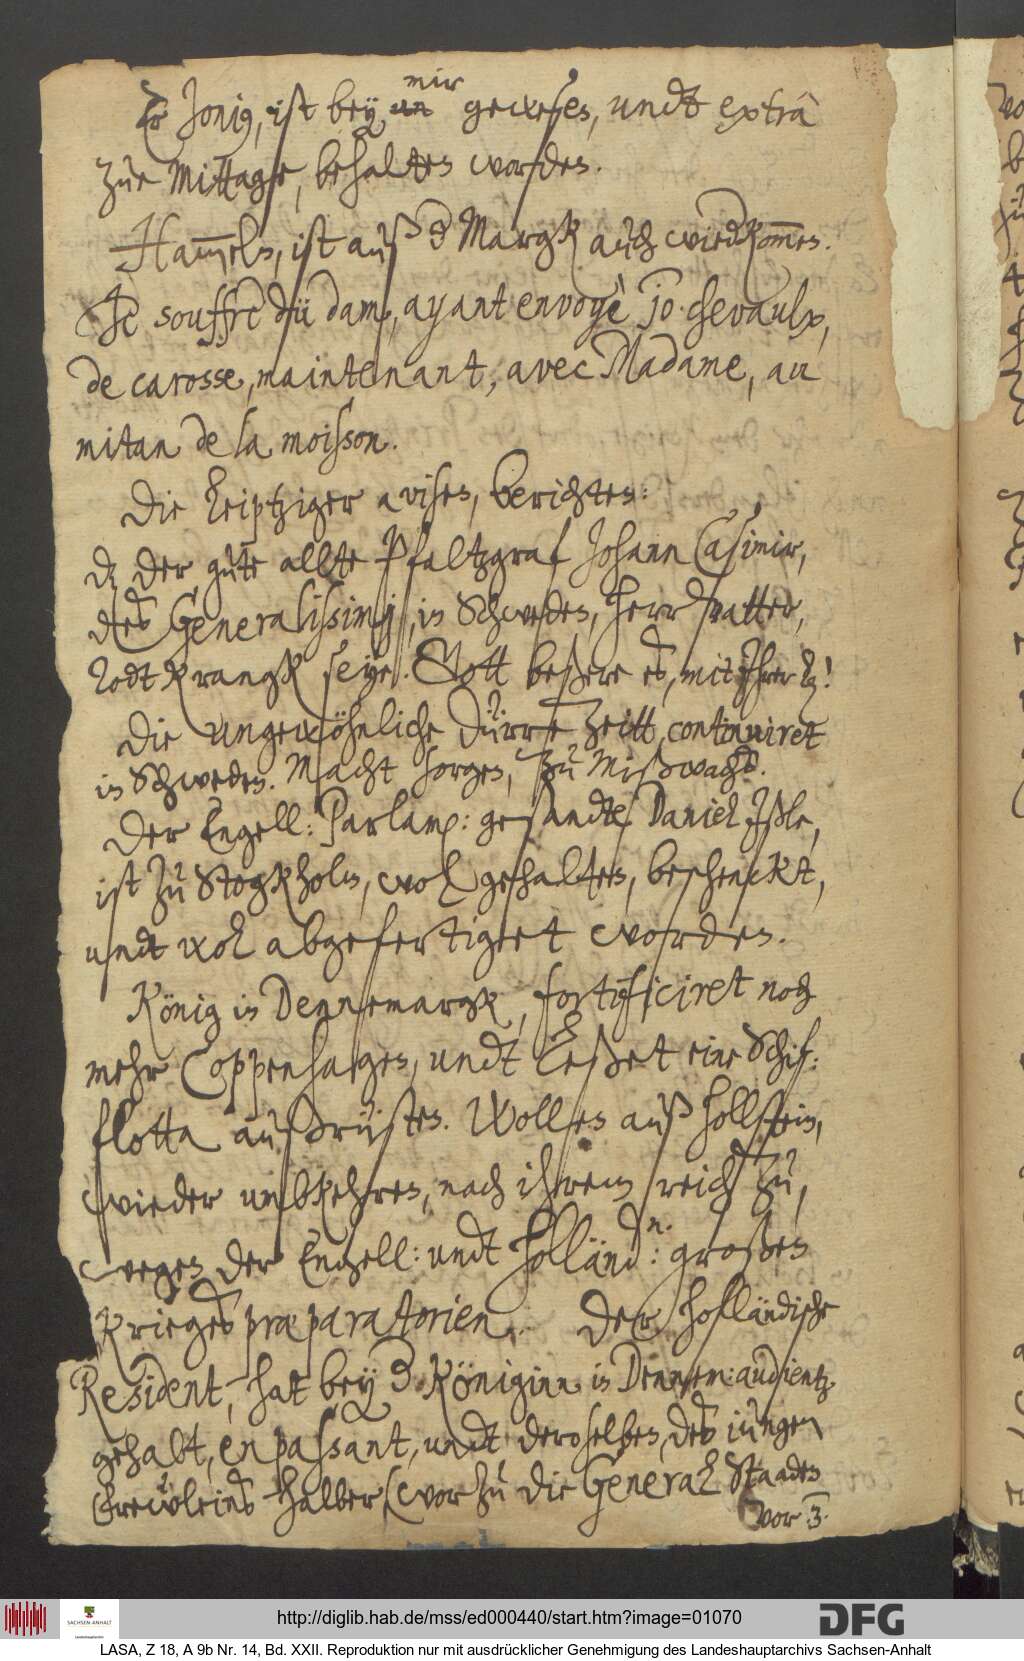 Er Jonig, ist bey mir gewesen, undt extra
zur Mittagße, behalten worden.
Hammeln, ist auß d Margk auch wiedkommen.
Je souffre dü dam, ayant envoyè 30. chevaulx,
de carosse, maintenant, avec Madame, au
mitan de la moisson.
Die Leiptziger avisen, berichten:
dz der gute allte Pfaltzgraf Johann Casimir,
des Generalissimj, in Schweden, herrvatter,
Todtkrangk seye. Gott beßere es, mit Ihrer L!
Die ungewöhnliche dürre Zeitt, continuiret
in Schweden. Macht sorgen, zu Mißwachß.
Der Engell: Parlam: gesandte Daniel Ißle,
ist zu Stogkholm, wol gehalten, beschenckt,
undt wol abgefertiget worden.
König in Dennemargk, fortificiret noch
mehr Coppenhagen, undt leßet eine Schif:
flotta außrüsten. Wollen auß hollstein,
wieder umbkehren, nach ihrem reich zu,
wegen der Engell: undt Holländ:n. großen
Krieges præparatorien. Der holländische
Resident, hat bey d. Königinn in Dennem: audientz
gehabt, en passant, undt deroselben, des jungen
Frewleins halber (worzu die General Staaden
vor 3.
http://diglib.hab.de/mss/ed000440/start.htm?image=01070
DFG
SACHSEN-ANHALT
LASA, Z 18, A 9b Nr. 14, Bd. XXII. Reproduktion nur mit ausdrücklicher Genehmigung des Landeshauptarchivs Sachsen-Anhalt